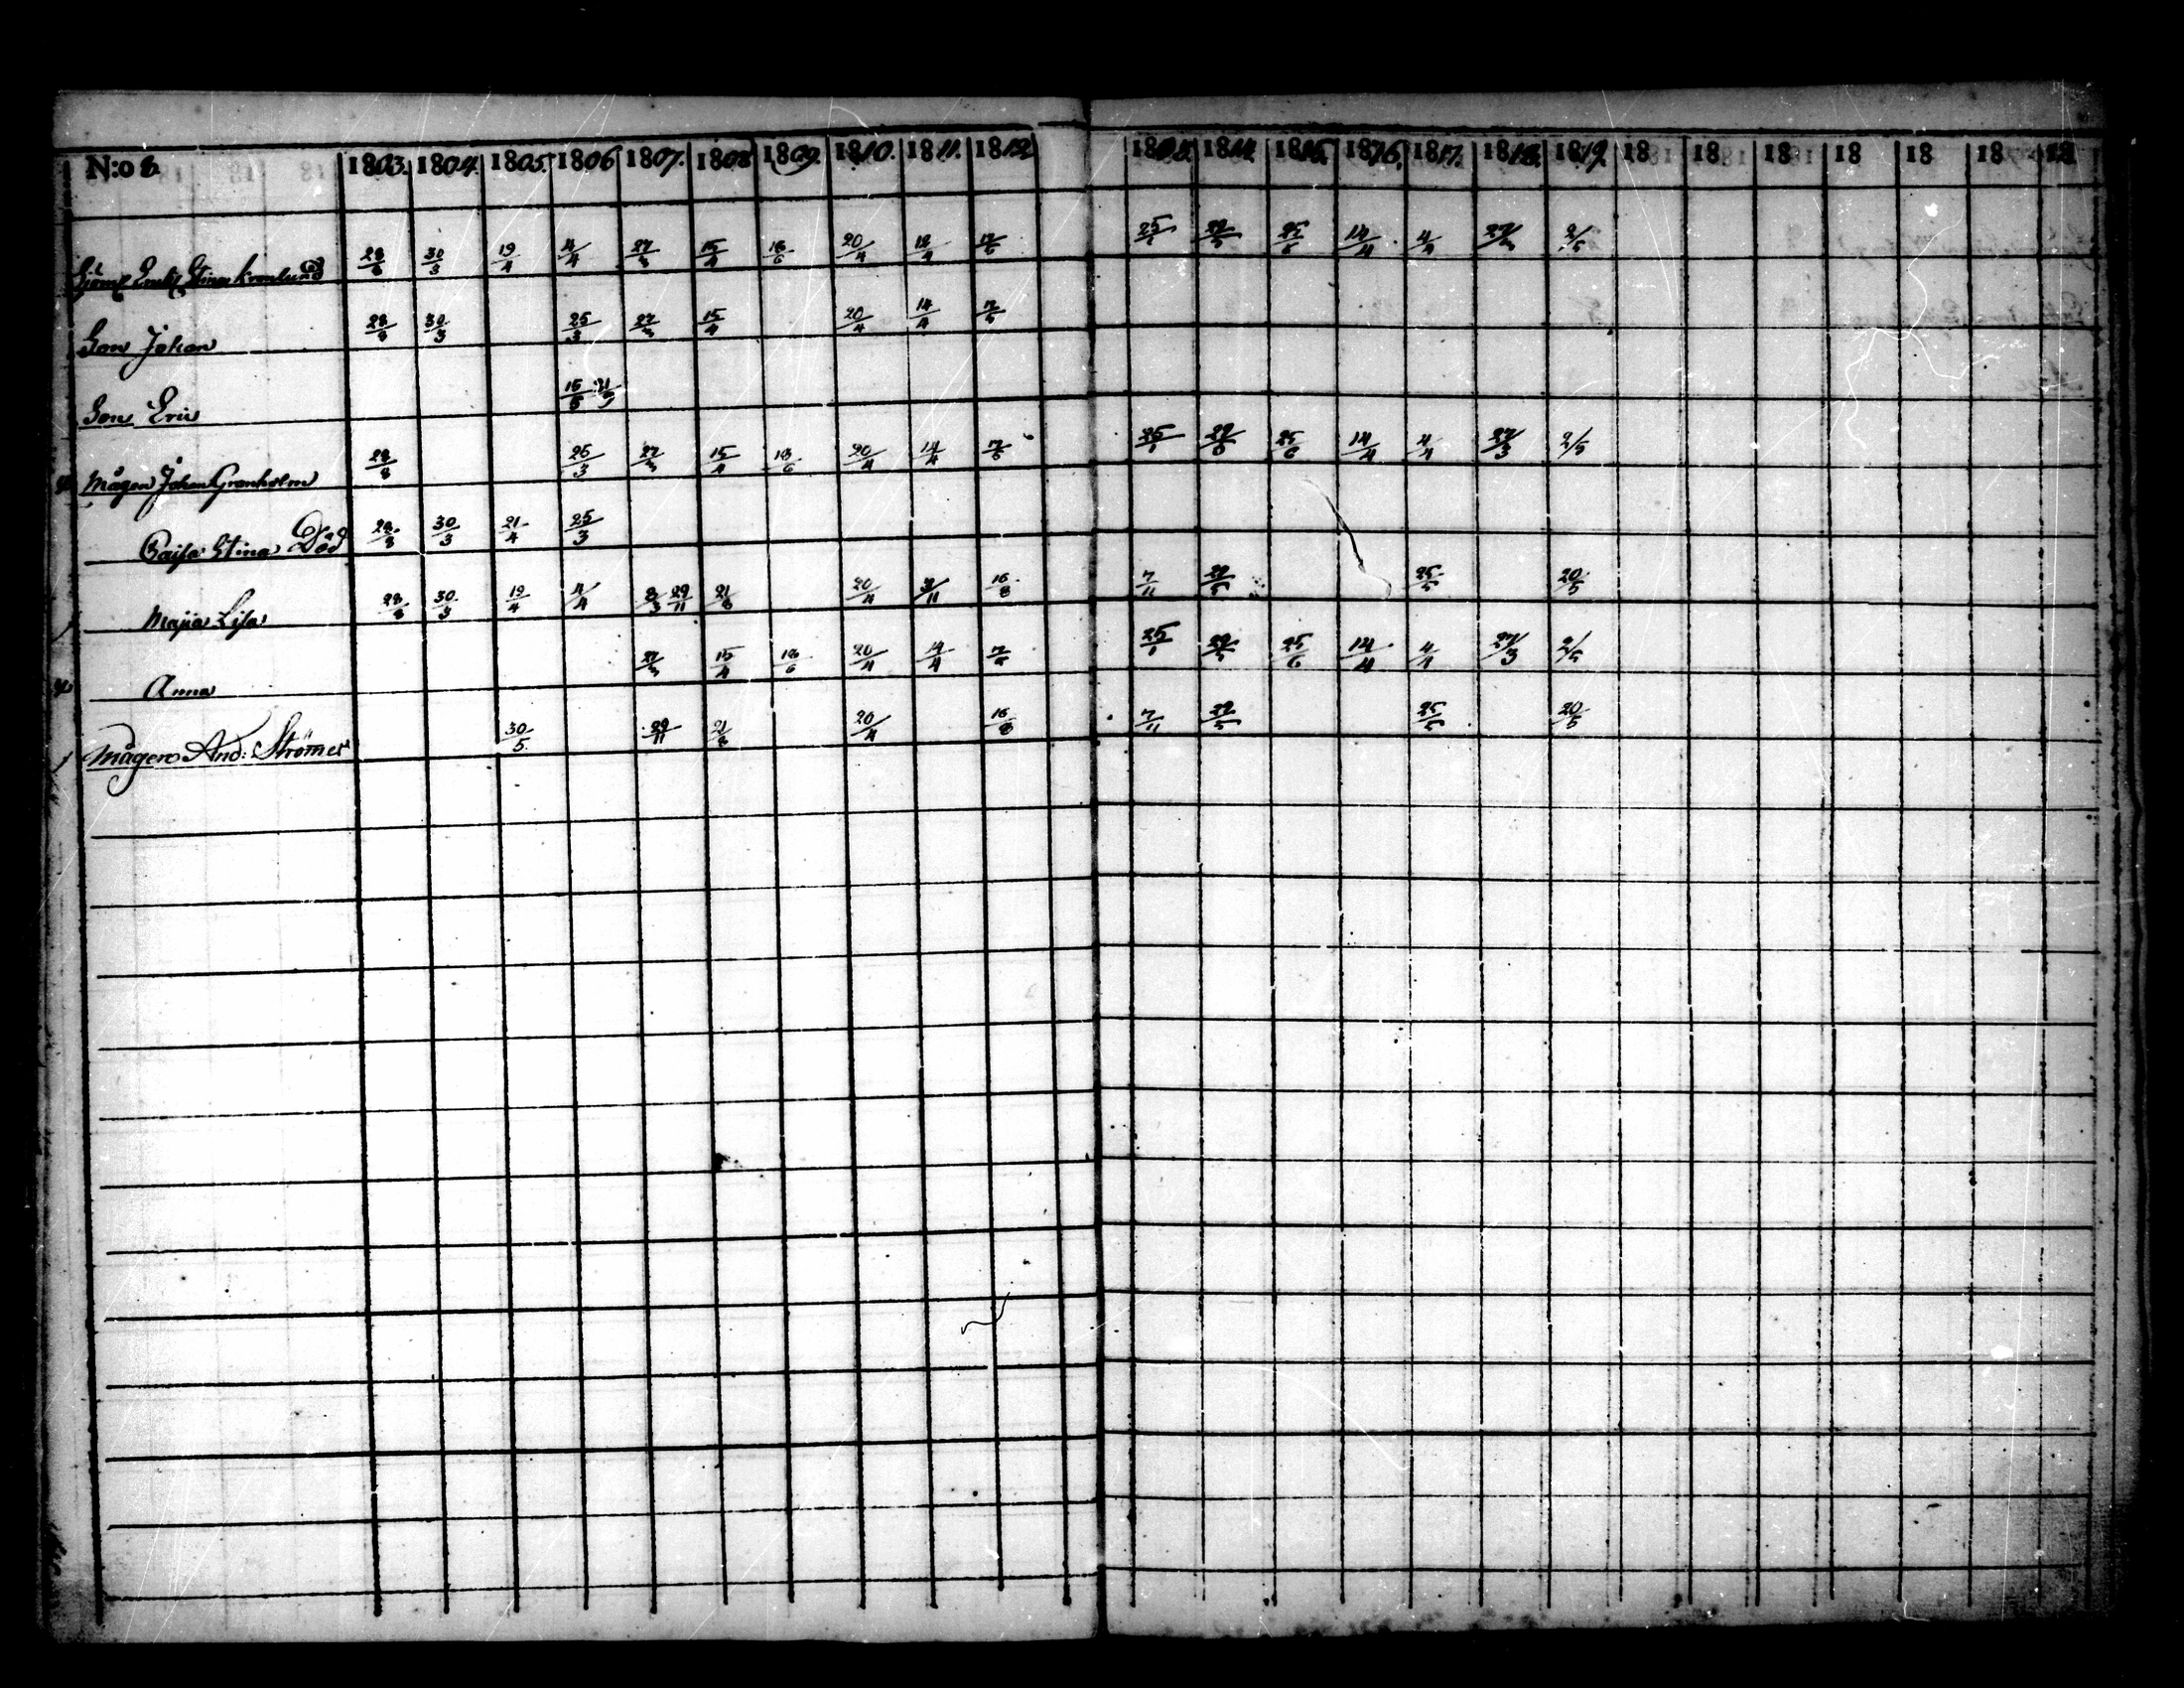 N:o 8. 1803. 1804. 1805. 1806 1807. 1808 1809. 1810. 1811. 1812 1813. 1814. 1815. 1816. 1817. 1818. 1819. 18 18 18 18 18 18 18
Stina Kronlund 28/8 30/3 19/4 4/4 27/3 15/4 18/6 20/4 25/1 29/5 25/6 14/4 4/4 27/3 2/5
Son Johan 28/8 30/3 25/3 27/3 15/4 20/4 14/4 7/6
Son Eric 15/6
Mågen Johan Granholm 28/8 25/3 27/3 15/4 18/6 20/4 14/4 7/6 25/1 29/5 25/6 14/4 4/4 27/3 2/5
Cajsa Stina Död 28/8 30/3 21/4 25/3
Majia Lisa 28/8 30/3 19/4 4/4 29/11 21/8 20/4 3/11 16/8 7/11 29/5 25/5 20/5
Anna 27/3 15/4 18/6 20/4 14/4 7/6 25/1 29/5 25/6 14/4 4/4 27/3 2/5
Mågen And: Strömer 30/5 29/11 21/8 20/4 16/8 7/11 29/5 25/5 20/5